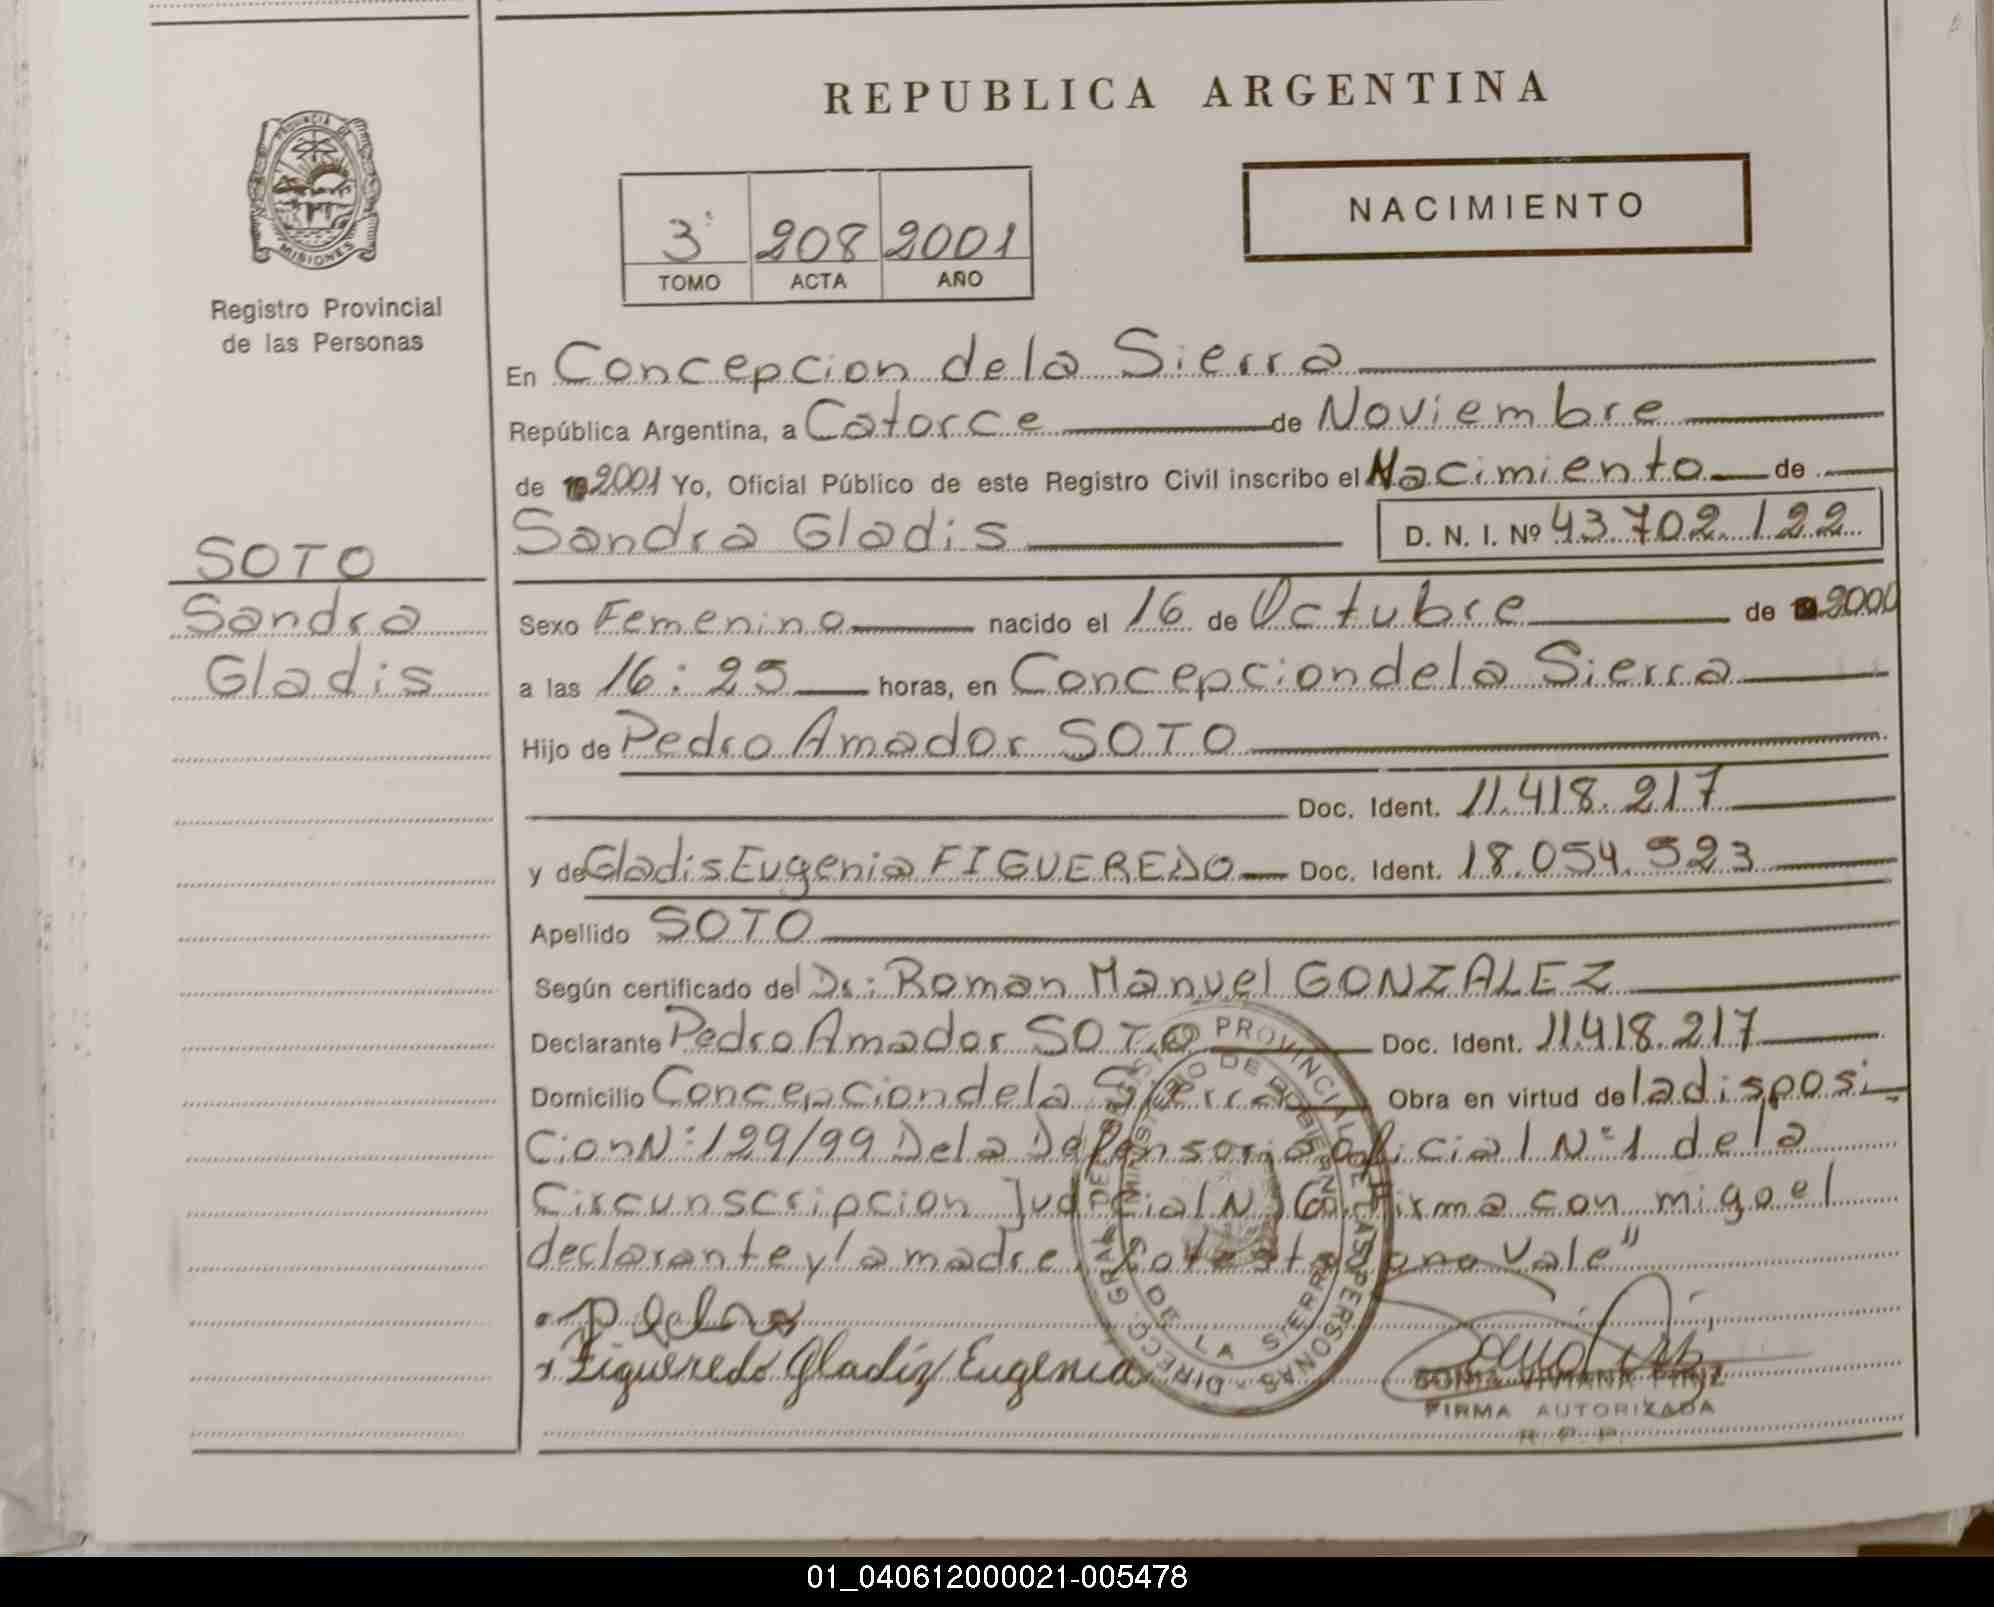 REPUBLICA ARGENTINA
PROVINCIA DE
MISIONES
Registro Provincial
de las Personas
3° 208 2001
TOMO ACTA AÑO
NACIMIENTO
En Concepcion de la Sierra
República Argentina, a Catorce de Noviembre
de 2001 Yo, Oficial Público de este Registro Civil inscribo el Nacimiento de
Sandra Gladis D. N. I. Nº 43.702.122
SOTO
Sandra
Gladis
Sexo Femenino nacido el 16 de Octubre de 2000
a las 16:25 horas, en Concepcion de la Sierra
Hijo de Pedro Amador SOTO
Doc. Ident. 11.418.217
y de Gladis Eugenia FIGUEREDO Doc. Ident. 18.054.523
Apellido SOTO
Según certificado del Dr: Roman Manuel GONZALEZ
Declarante Pedro Amador SOTO Doc. Ident. 11.418.217
Domicilio Concepcion de la Sierra Obra en virtud de la disposi
cion N: 129/99 De la Defensoria Oficial N° 1 de la
Circunscripcion Judicial N) 6. Firma con migo el
declarante y la madre. no Vale"
Pedro
Figueredo Gladiz Eugenia
DIRECC. GRAL. DE PROVINCIAL DE LAS PERSONAS
MINISTERIO DE GOBIERNO
DE LA SIERRA
SONIA VIVIANA
FIRMA AUTORIZADA
R. P. P.
01_040612000021-005478